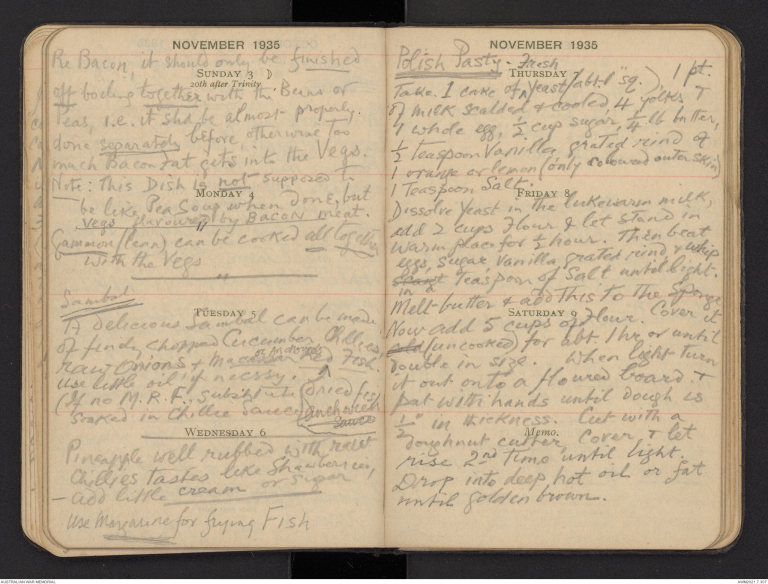 NOVEMBER 1935
Re Bacon, it should only be finished
SUNDAY 3
20th after Trinity.
off boiling together with the Beans or
Peas, i.e. it shd be almost properly
done separately before otherwise too
much Bacon Fat gets into the Vegs.
Note: This Dish is not supposed to
MONDAY 4
be like Pea Soup when done, but
Vegs flavoured by BACON meat.
Gammon (lean) can be cooked all together
with the Vegs
Sambal
TUESDAY 5
A delicious Sambal can be made
of finely chopped Cucumber, Chillies,
raw onions & Macassar Red Fish.
or Anchovies
Use little oil if necssy
(If no M.R.F., substitute dried fish
soaked in Chillie Sauce
Sauce
WEDNESDAY 6
Pineapple well rubbed with
Chillies tastes like Strawberries,
— add little cream or sugar
Use Margarine for frying FISH
NOVEMBER 1935
Polish Pasty - Fresh
THURSDAY 7
Take. 1 cake of yeast (abt. 1" sq.), 1 pt.
of milk scalded & cooled 4 yolks &
1 whole egg, ½ cup sugar, ¼ lb butter,
½ Teaspoon Vanilla, grated rind of
1 orange or lemon (only coloured outer skin)
1 Teaspoon Salt.
FRIDAY 8
Dissolve yeast in the lukewarm milk,
add 2 cups Flour & let stand in
warm place for ½ hour. Then beat
eggs, sugar Vanilla grated rind, & whip
in a Teaspoon of Salt until light.
Melt butter & add this to the Sponge
SATURDAY 9
Now add 5 cups of Flour. Cover it
(uncooked) for abt. 1 hr or until
double in size. When light turn
it out onto a floured board &
pat with hands until dough is
½" in thickness. Cut with a
Memo.
doughnut cutter, Cover & let
rise 2nd Time until light.
Drop into deep hot oil or fat
until golden brown.
AUSTRALIAN WAR MEMORIAL